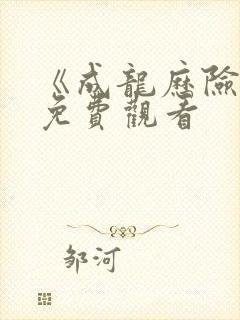 《成龍歷險
免費觀看
邹河